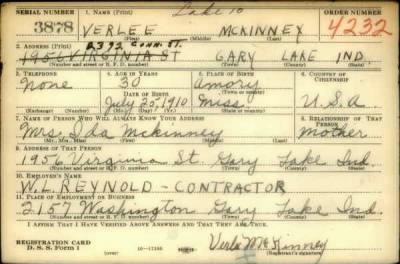 Lake 10
SERIAL NUMBER 1. NAME (Print) ORDER NUMBER
3878 VERLEE MCKINNEY 4232
(First) (Middle) (Last)
2392 Conn. St.
2. ADDRESS (Print)
1956 VIRGINIA ST GARY LAKE IND
(Number and street or R. F. D. number) (Town) (County) (State)
3. TELEPHONE 4. AGE IN YEARS 5. PLACE OF BIRTH 6. COUNTRY OF CITIZENSHIP
None 30 Amory
DATE OF BIRTH
July 25, 1910 Miss U.S.A.
(Exchange) (Number) (Mo.) (Day) (Yr.) (State or country)
7. NAME OF PERSON WHO WILL ALWAYS KNOW YOUR ADDRESS 8. RELATIONSHIP OF THAT PERSON
Mrs. Ida Mckinney Mother
(Mr., Mrs., Miss) (First) (Middle) (Last)
9. ADDRESS OF THAT PERSON
1956 Virginia St. Gary Lake Ind.
(Number and street or R. F. D. number) (Town) (County) (State)
10. EMPLOYER'S NAME
W.L. REYNOLD - CONTRACTOR
11. PLACE OF EMPLOYMENT OR BUSINESS
2157 Washington Gary Lake Ind.
(Number and street or R. F. D. number) (Town) (County) (State)
I AFFIRM THAT I HAVE VERIFIED ABOVE ANSWERS AND THAT THEY ARE TRUE.
REGISTRATION CARD
D. S. S. Form 1 (over) 16-17105 Verlee McKinney
(Registrant's signature)